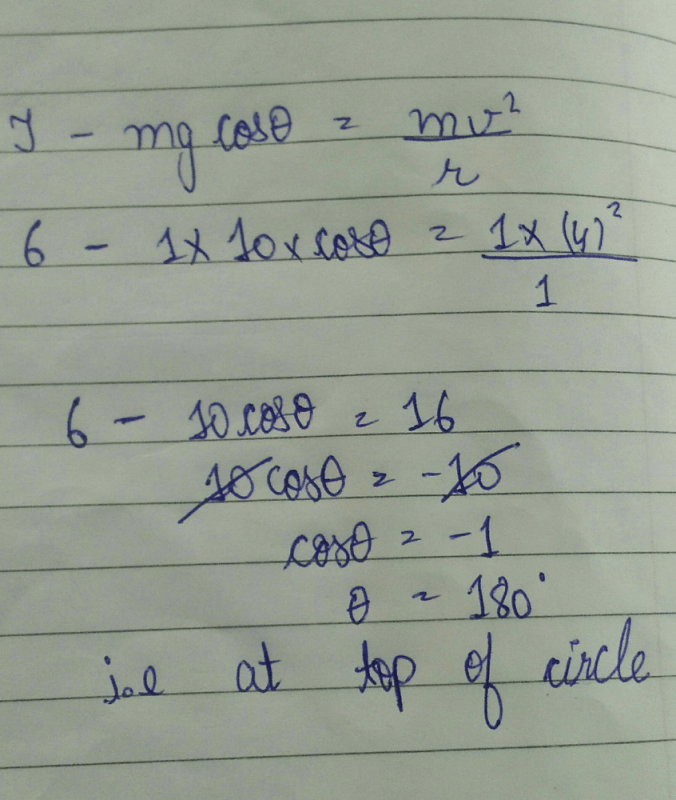 T - mg cosθ = mv²/r
6 - 1 x 10 x cosθ = 1 x (4)²/1
6 - 10 cosθ = 16
10 cosθ = -10
cosθ = -1
θ = 180°
i.e at top of circle